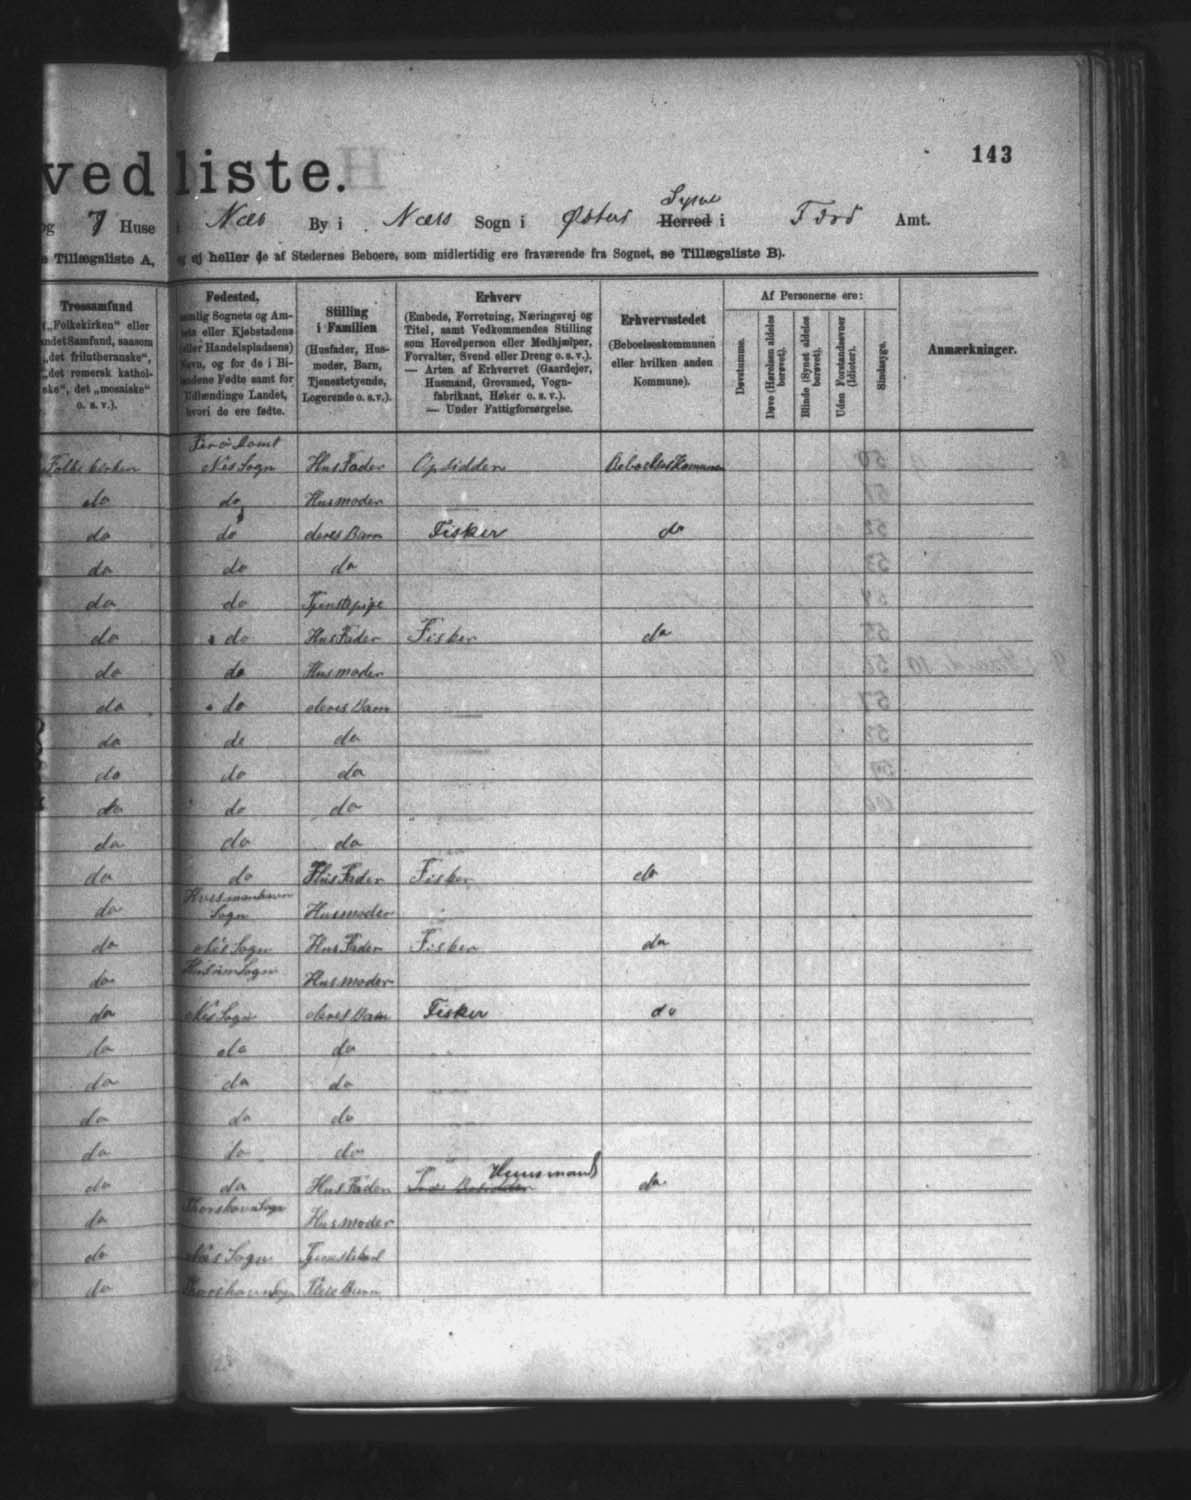 143
vedliste.
og 7 Huse i Næs By i Næss Sogn i Østerø Herred Sysel i Færø Amt.
Tillægsliste A, og ej heller de af Stedernes Beboere, som midlertidig ere fraværende fra Sognet, se Tillægsliste B).
Trossamfund
„Folkekirken“ eller
andetSamfund, saasom
„det frilutheranske“,
„det romersk kathol-
ske“, det „mosaiske“
o. s. v.).
Fødested,
nemlig Sognets og Am-
tets eller Kjøbstadens
(eller Handelspladsens)
Navn, og for de i Bi-
landene Fødte samt for
Udlændinge Landet,
hvori de ere fødte.
Stilling
i Familien
(Husfader, Hus-
moder, Barn,
Tjenestetyende,
Logerende o. s.v.).
Erhverv
(Embede, Forretning, Næringsvej og
Titel, samt Vedkommendes Stilling
som Hovedperson eller Medhjælper,
Forvalter, Svend eller Dreng o. s. v.).
— Arten af Erhvervet (Gaardejer,
Husmand, Grovsmed, Vogn-
fabrikant, Høker o. s. v.).
— Under Fattigforsørgelse.
Erhvervsstedet
(Beboelseskommunen
eller hvilken anden
Kommune).
Af Personerne ere:
Døvstumme.
Døve (Hørelsen aldeles
berøvet).
Blinde (Synet aldeles
berøvet).
Uden Forstandsevner
(Idioter).
Sindssyge.
Anmærkninger.
Færø Aamt
Folkekirken Nes Sogn HusFader Opsidder Beboelseskommunen
do do Husmoder
do do deres Barn Fisker do
do do do
do do Tjenstepige
do do HusFader Fisker do
do do Husmoder
do do deres Barn
do do do
do do do
do do do
do do do
do do HusFader Fisker do
do Sogn Husmoder
do Nes Sogn HusFader Fisker do
do Husmoder
do Nes Sogn deres Barn Fisker do
do do do
do do do
do do do
do do do
do do HusFader Huusmand do
do Thorshavn Sogn Husmoder
do Nes Sogn
do Thorshavn Sogn